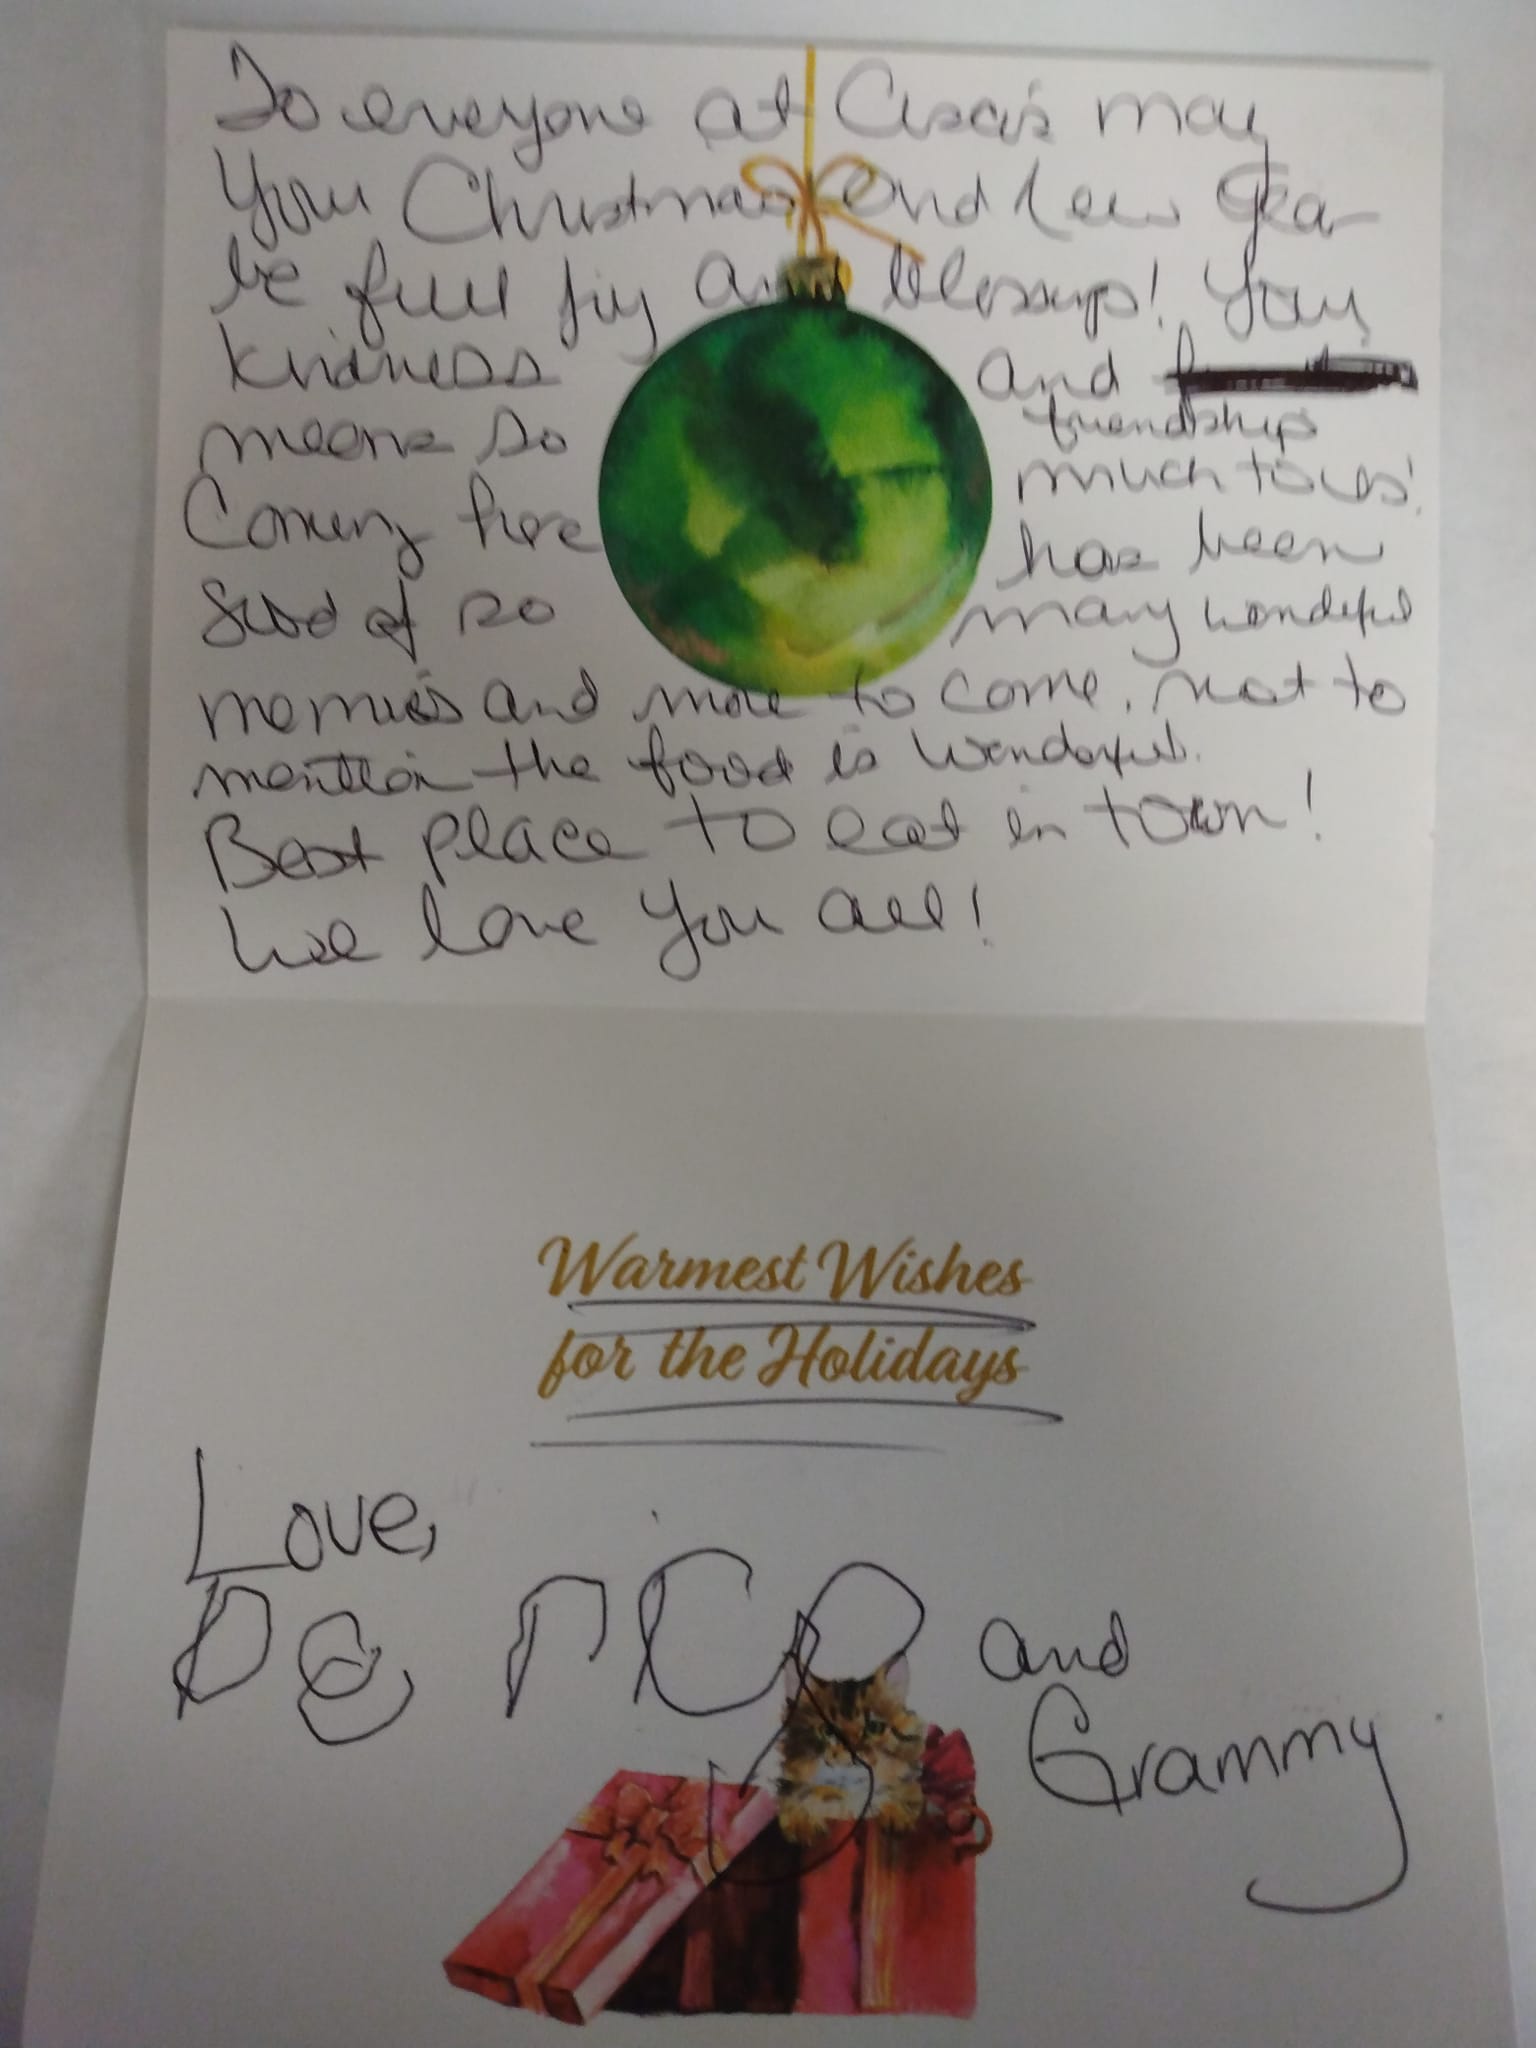 To everyone at may
Your Christmas and New Year
be full joy and blessings! Your
kindness and
friendship
means so much to us!
Coming here has been
of so many wonderful
memories and more to come. Not to
mention the food is wonderful.
Best place to eat in town!
We love you all!
Warmest Wishes
for the Holidays
Love,
and
Grammy